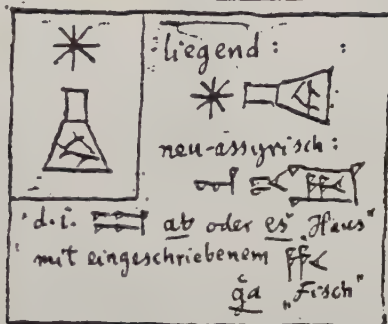 liegend:
neu-assyrisch:
d.i. ab oder eš „Haus"
mit eingeschriebenem
ga „Fisch"